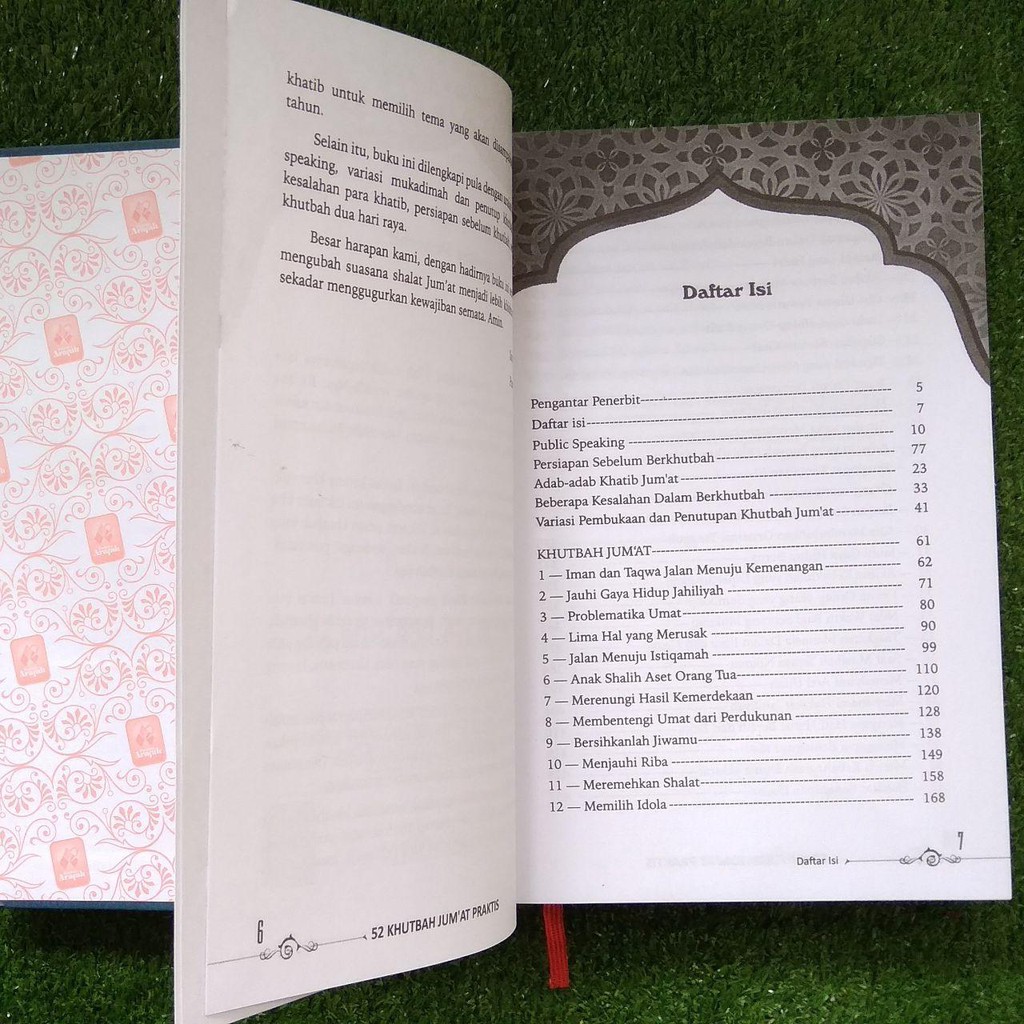 khatib untuk memilih tema yang akan
tahun.
Selain itu, buku ini dilengkapi pula dengan
speaking, variasi mukadimah dan penutup
kesalahan para khatib, persiapan sebelum
khutbah dua hari raya.
Besar harapan kami, dengan hadirnya buku ini
mengubah suasana shalat Jum'at menjadi lebih
sekadar menggugurkan kewajiban semata. Amin.
6
52 KHUTBAH JUM'AT PRAKTIS
Daftar Isi
Pengantar Penerbit 5
Daftar isi 7
Public Speaking 10
Persiapan Sebelum Berkhutbah 77
Adab-adab Khatib Jum'at 23
Beberapa Kesalahan Dalam Berkhutbah 33
Variasi Pembukaan dan Penutupan Khutbah Jum'at 41
KHUTBAH JUM'AT 61
1 — Iman dan Taqwa Jalan Menuju Kemenangan 62
2 — Jauhi Gaya Hidup Jahiliyah 71
3 — Problematika Umat 80
4 — Lima Hal yang Merusak 90
5 — Jalan Menuju Istiqamah 99
6 — Anak Shalih Aset Orang Tua 110
7 — Merenungi Hasil Kemerdekaan 120
8 — Membentengi Umat dari Perdukunan 128
9 — Bersihkanlah Jiwamu 138
10 — Menjauhi Riba 149
11 — Meremehkan Shalat 158
12 — Memilih Idola 168
Daftar Isi
7